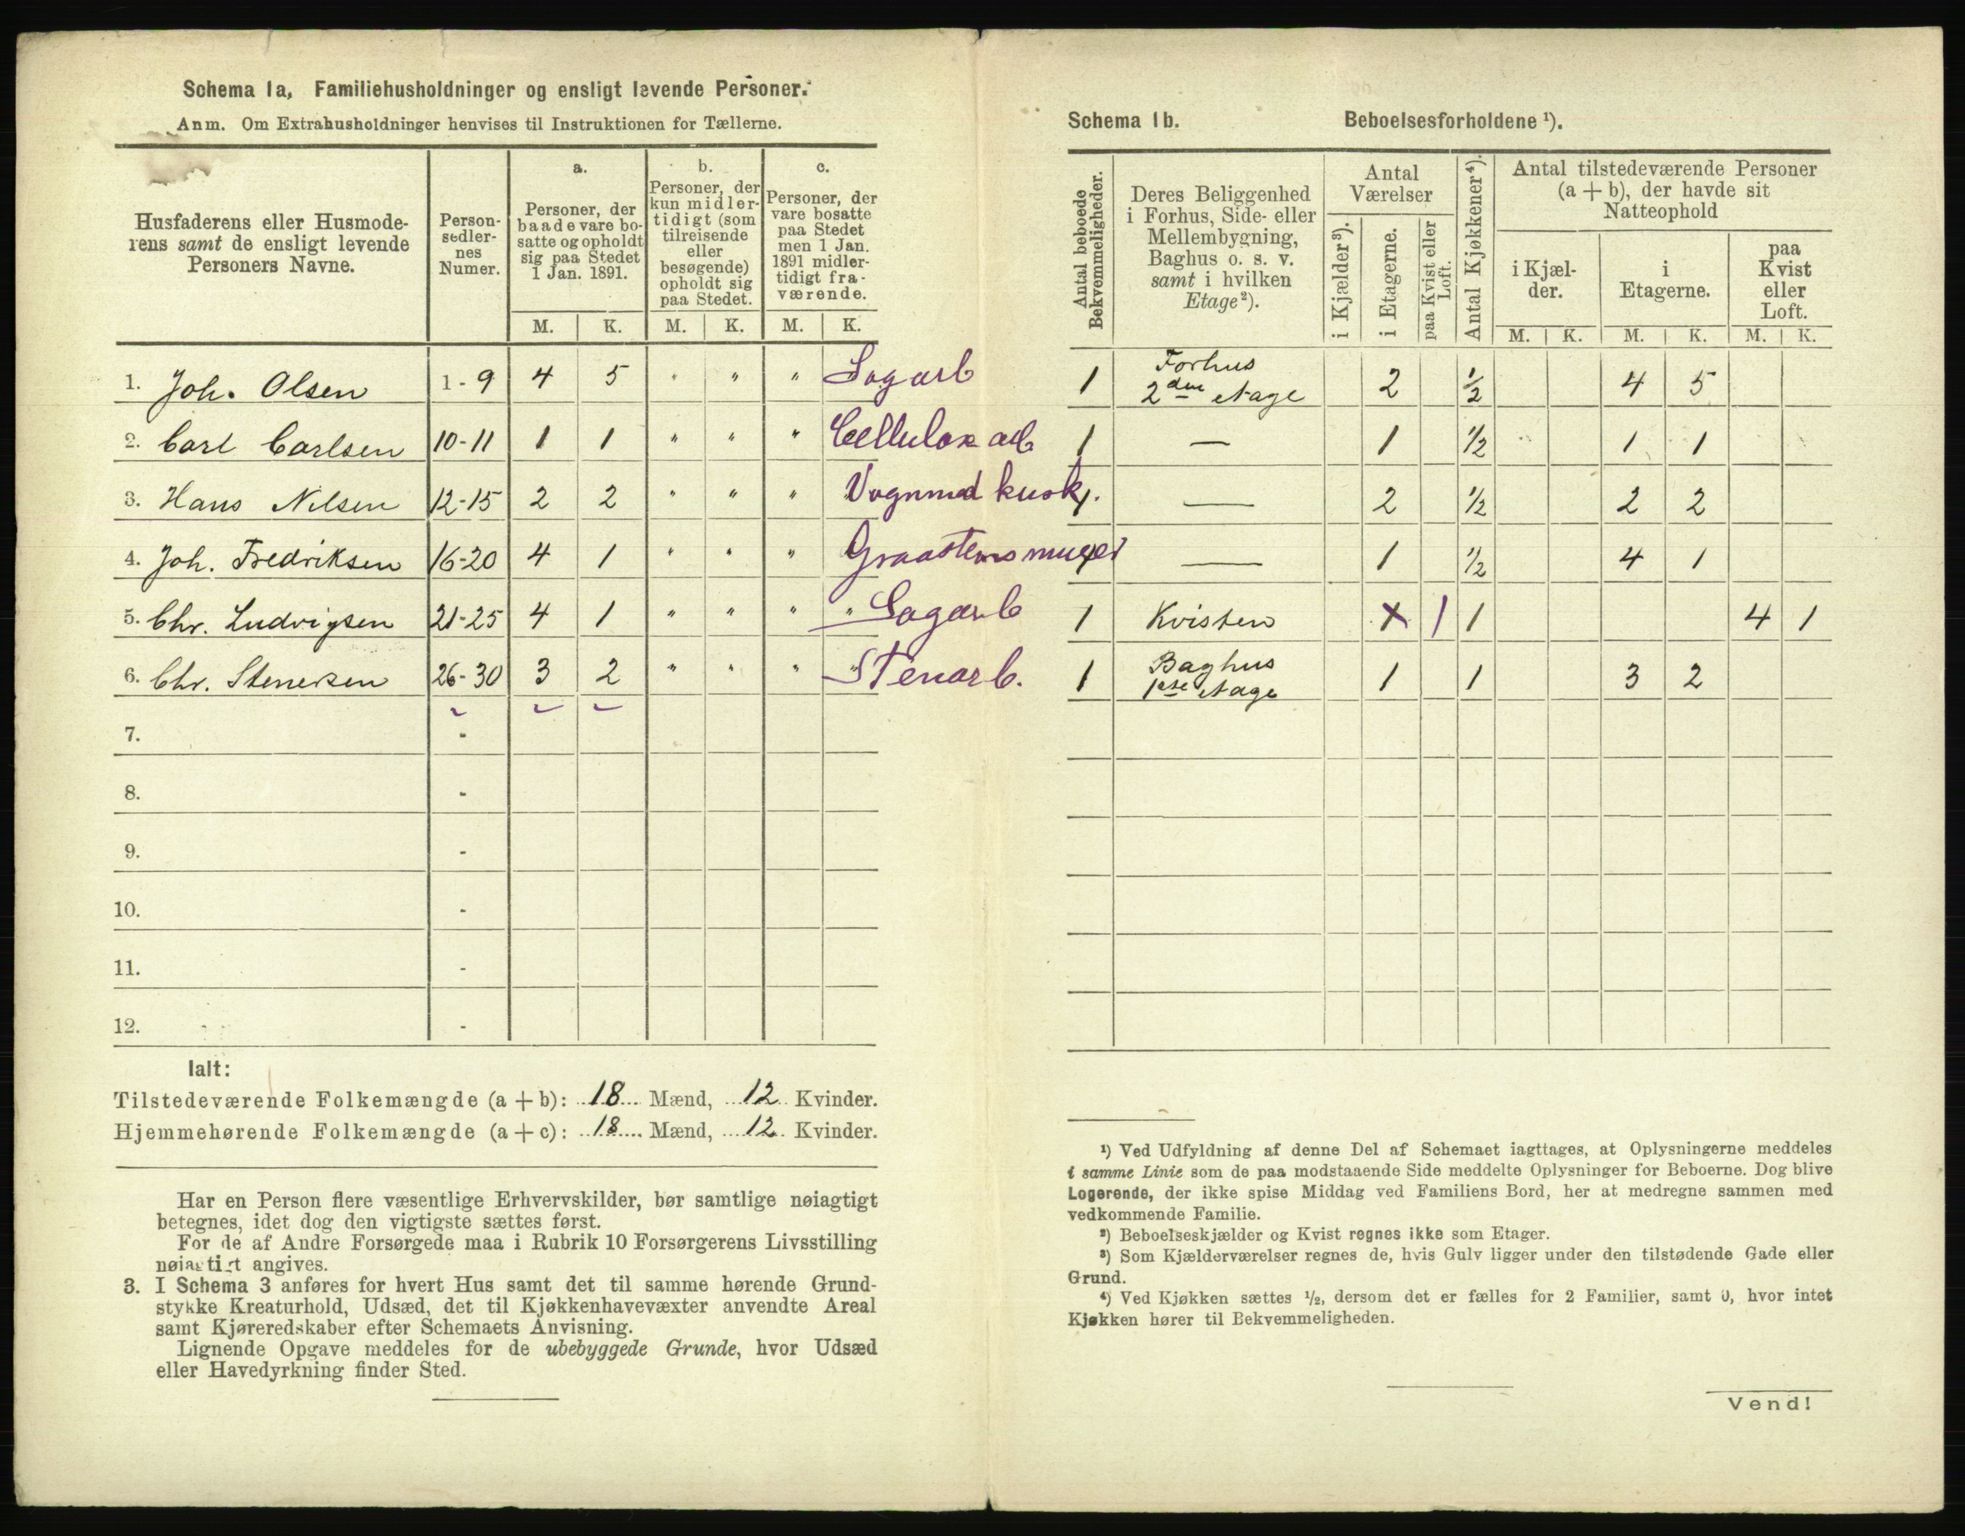 Schema 1a, Familiehusholdninger og ensligt levende Personer.
Anm. Om Extrahusholdninger henvises til Instruktionen for Tællerne.
Husfaderens eller Husmoderens samt de ensligt levende Personers Navne.
Person-
sedler-
nes
Numer.
a.
Personer, der
baade vare bo-
satte og opholdt
sig paa Stedet
1 Jan. 1891.
b.
Personer, der
kun midler-
tidigt (som
tilreisende
eller
besøgende)
opholdt sig
paa Stedet.
c.
Personer, der
vare bosatte
paa Stedet
men 1 Jan.
1891 midler-
tidigt fra-
værende.
M. K. M. K. M. K.
1. Joh. Olsen 1-9 4 5 " " " Sagarb
2. Carl Carlsen 10-11 1 1 " " " Cellulose arb
3. Hans Nilsen 12-15 2 2 " " " Vognmd kusk.
4. Joh. Fredriksen 16-20 4 1 " " " Graastensmurer
5. Chr. Ludvigsen 21-25 4 1 " " " " Sagarb
6. Chr. Stenersen 26-30 3 2 " " " " Stenarb.
7. -
8. -
9. -
10. -
11. -
12. -
Ialt:
Tilstedeværende Folkemængde (a + b): 18 Mænd, 12 Kvinder.
Hjemmehørende Folkemængde (a + c): 18 Mænd, 12 Kvinder.
Har en Person flere væsentlige Erhvervskilder, bør samtlige nøiagtigt
betegnes, idet dog den vigtigste sættes først.
For de af Andre Forsørgede maa i Rubrik 10 Forsørgerens Livsstilling
nøiagtigt angives.
3. I Schema 3 anføres for hvert Hus samt det til samme hørende Grund-
stykke Kreaturhold, Udsæd, det til Kjøkkenhavevæxter anvendte Areal
samt Kjøreredskaber efter Schemaets Anvisning.
Lignende Opgave meddeles for de ubebyggede Grunde, hvor Udsæd
eller Havedyrkning finder Sted.
Schema 1b. Beboelsesforholdene ¹).
Antal beboede
Bekvemmeligheder.
Deres Beliggenhed
i Forhus, Side- eller
Mellembygning,
Baghus o. s. v.
samt i hvilken
Etage²).
Antal
Værelser
i Kjælder³).
i Etagerne.
paa Kvist eller
Loft.
Antal Kjøkkener⁴).
Antal tilstedeværende Personer
(a + b), der havde sit
Natteophold
i Kjæl-
der.
i
Etagerne.
paa
Kvist
eller
Loft.
M. K. M. K. M. K.
1 Forhus
2den etage 2 1/2 4 5
1 — 1 1/2 1 1
1 — 2 1/2 2 2
1 — 1 1/2 4 1
1 Kvisten X 1 1 4 1
1 Baghus
1ste etage 1 1 3 2
¹) Ved Udfyldning af denne Del af Schemaet iagttages, at Oplysningerne meddeles
i samme Linie som de paa modstaaende Side meddelte Oplysninger for Beboerne. Dog blive
Logerende, der ikke spise Middag ved Familiens Bord, her at medregne sammen med
vedkommende Familie.
²) Beboelseskjælder og Kvist regnes ikke som Etager.
³) Som Kjælderværelser regnes de, hvis Gulv ligger under den tilstødende Gade eller
Grund.
⁴) Ved Kjøkken sættes ½, dersom det er fælles for 2 Familier, samt 0, hvor intet
Kjøkken hører til Bekvemmeligheden.
Vend!